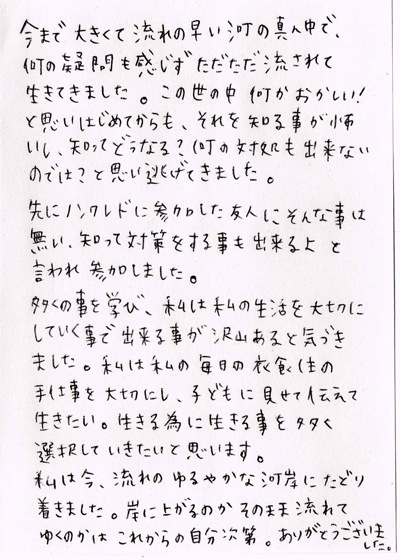 今まで大きくて流れの早い河の真ん中で、
何の疑問も感じずただただ流されて
生きてきました。この世の中何かおかしい!
と思いはじめてからも、それを知る事が怖
いし、知ってどうなる?何の対処も出来ない
のでは?と思い逃げてきました。
先にノンクレドに参加した友人にそんな事は
無い、知って対策をする事も出来るよと
言われ参加しました。
多くの事を学び、私は私の生活を大切に
していく事で出来る事が沢山あると気づき
ました。私は私の毎日の衣食住の
手仕事を大切にし、子どもに見せて伝えて
生きたい。生きる為に生きる事を多く
選択していきたいと思います。
私は今、流れのゆるやかな河岸にたどり
着きました。岸に上がるのかそのまま流れて
ゆくのかはこれからの自分次第。ありがとうございま
した。